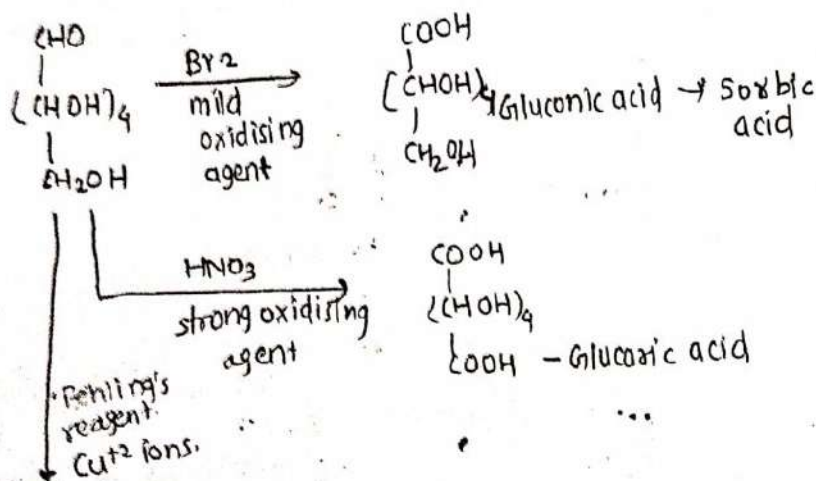 CHO
(CHOH)4
CH2OH
Br2
mild
oxidising
agent
COOH
(CHOH)4
CH2OH
Gluconic acid → Sorbic
acid
HNO3
strong oxidising
agent
COOH
(CHOH)4
COOH - Glucaric acid
Fehling's
reagent.
Cu+2 ions.